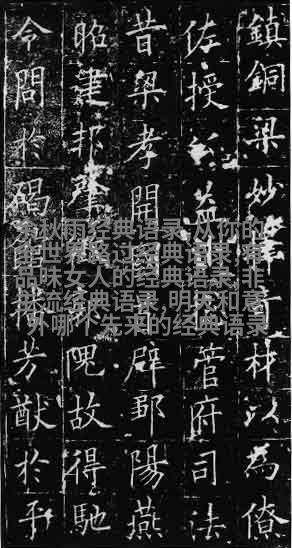 鎮銅梁妙奇材以為僚
佐授公益管府司法
昔梁孝開國首辟鄒陽燕
昭建邦肇隗故得馳
令問於碣館播芳猷於平
余秋雨经典语录,从你的
全世界路过经典语录,有
品味女人的经典语录,非
主流经典语录,明天和意
外哪个先来的经典语录